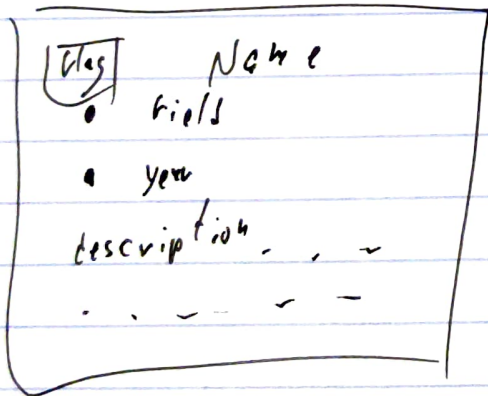 flag Name
• field
• year
description